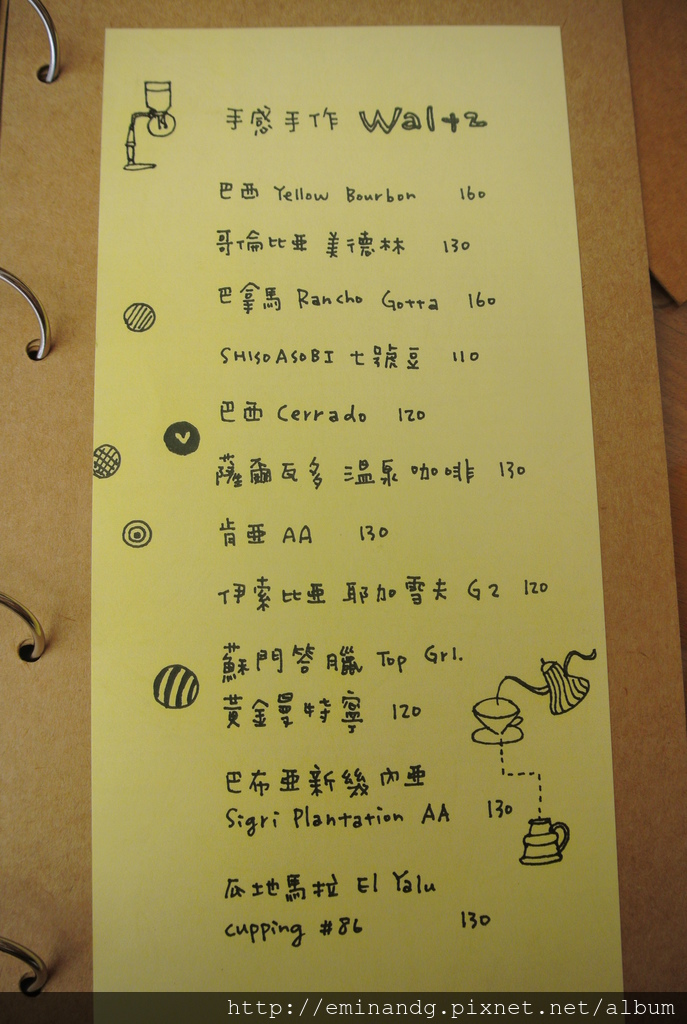 手感手作 Waltz
巴西 Yellow Bourbon 160
哥倫比亞 美德林 130
巴拿馬 Rancho Gotta 160
SHISOASOBI 七號豆 110
巴西 Cerrado 120
薩爾瓦多 溫泉咖啡 130
肯亞 AA 130
伊索比亞 耶加雪夫 G2 120
蘇門答臘 Top Gr1.
黃金曼特寧 120
巴布亞新幾內亞
Sigri Plantation AA 130
瓜地馬拉 El Yalu
cupping #86 130
http://eminandg.pixnet.net/album